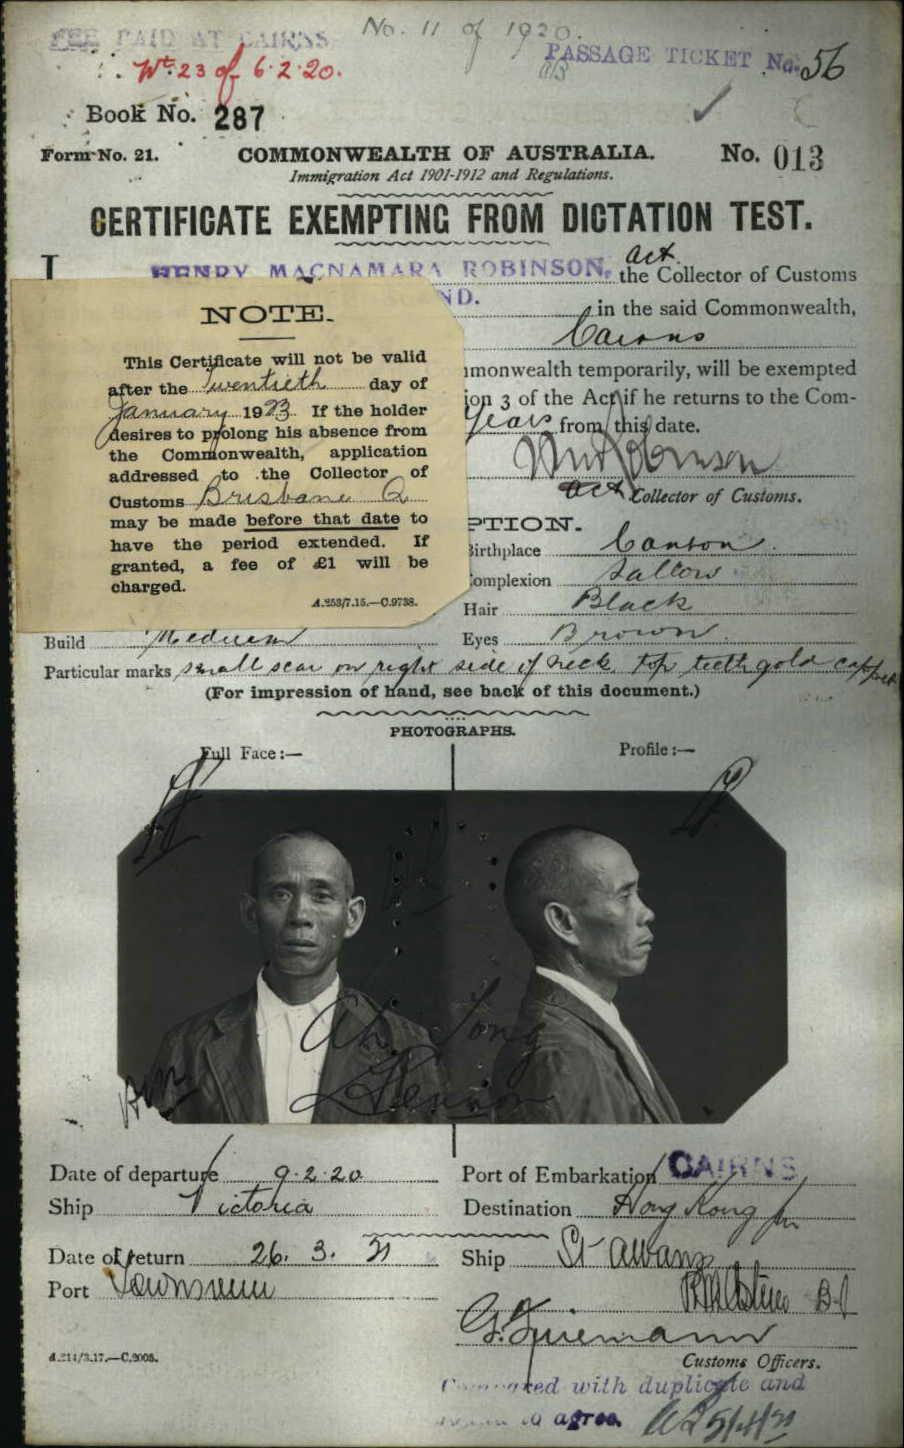 No. 11 of 1920.
FEE PAID AT CAIRNS
PASSAGE TICKET No. 56
Wt. 23 of 6.2.20.
Book No. 287
Form No. 21.
COMMONWEALTH OF AUSTRALIA.
No. 013
Immigration Act 1901-1912 and Regulations.
CERTIFICATE EXEMPTING FROM DICTATION TEST.
I HENRY MACNAMARA ROBINSON, act. the Collector of Customs
ND. in the said Commonwealth,
Cairns
mmonwealth temporarily, will be exempted
ion 3 of the Act if he returns to the Com-
Years from this date.
Robinson
act Collector of Customs.
NOTE.
This Certificate will not be valid
after the Twentieth day of
January 1923 If the holder
desires to prolong his absence from
the Commonwealth, application
addressed to the Collector of
Customs Brisbane Q
may be made before that date to
have the period extended. If
granted, a fee of £1 will be
charged.
A.253/7.15.—C.9738.
PTION.
Birthplace Canton.
Complexion Sallow
Hair Black
Build Medium
Eyes Brown.
Particular marks small scar on right side of neck. top teeth gold
(For impression of hand, see back of this document.)
PHOTOGRAPHS.
Full Face:—
Profile:—
Ah Tong
Date of departure 9.2.20
Port of Embarkation CAIRNS
Ship Victoria
Destination Hong Kong
Date of return 26. 3. 21
Ship St Albans
Port Townsville
Customs Officers.
A.214/3.17.—C.2008.
Compared with duplicate and
found to agree.